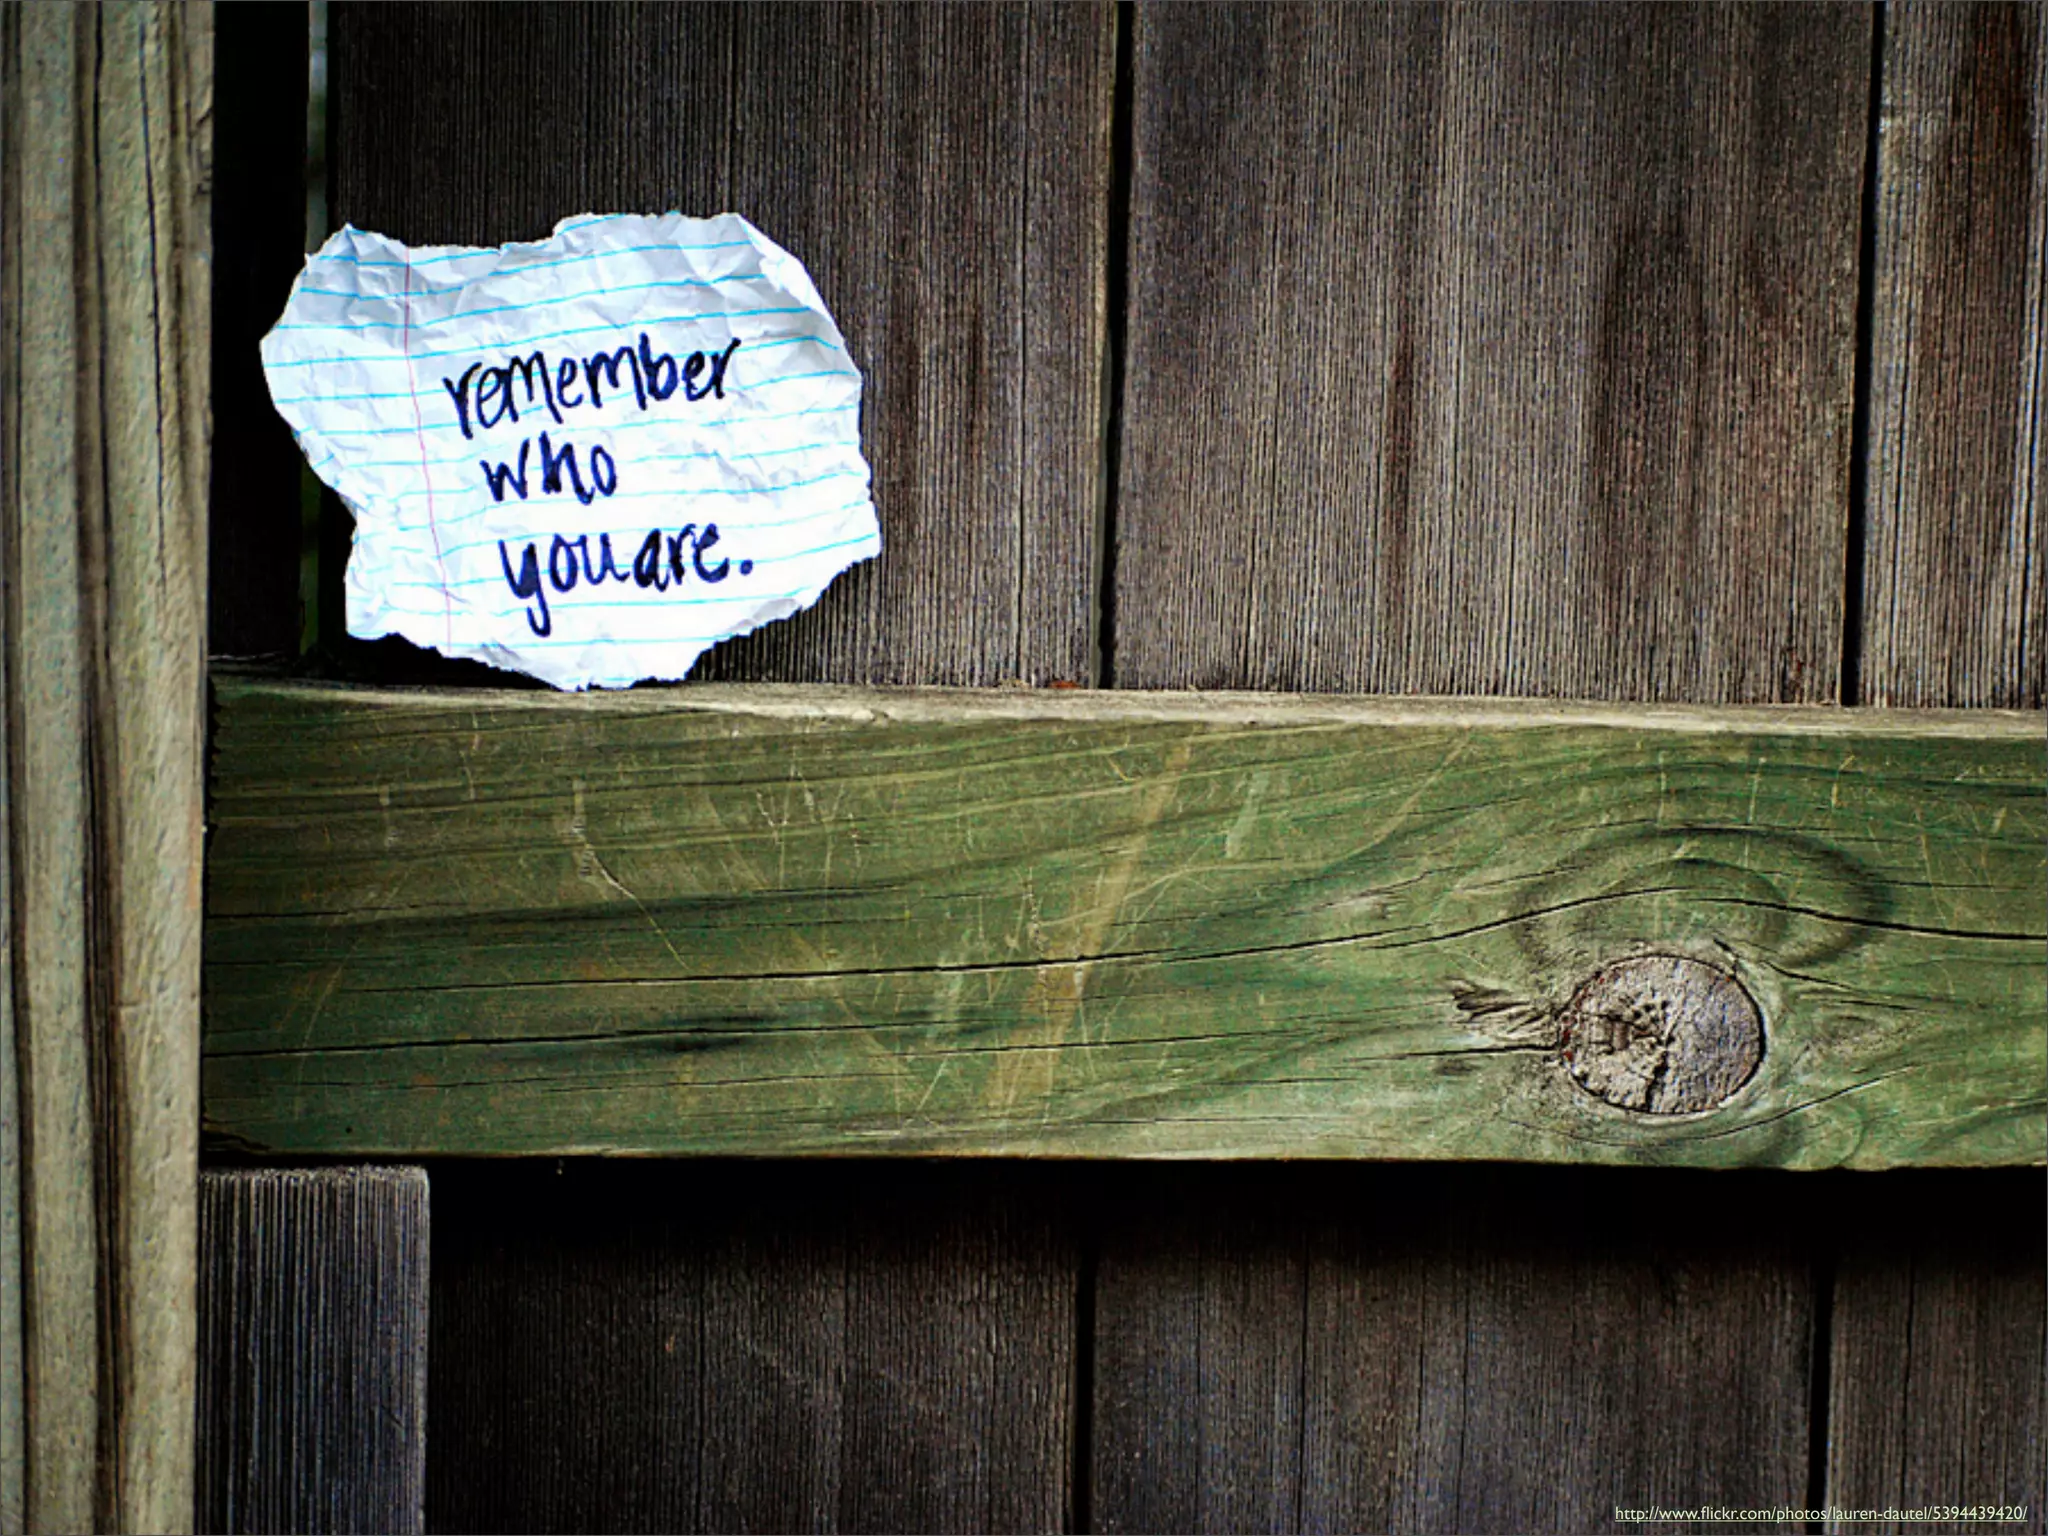 remember
who
you are.
http://www.flickr.com/photos/lauren-dautel/5394439420/